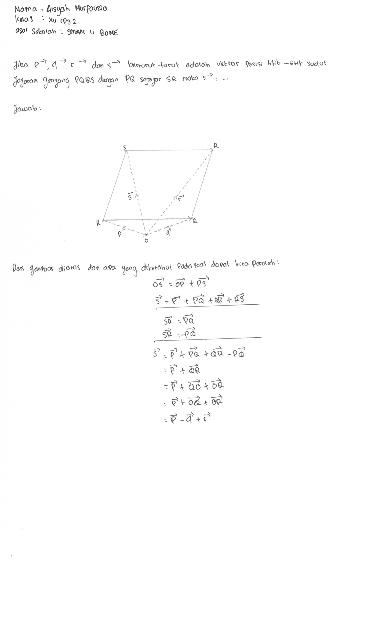 Nama : Aisyah Nurfauzia
Kelas : XII IPS 2
Asal Sekolah : SMAN 11 BONE
Jika p→, q→, r→ dan s→ berturut-turut adalah vektor posisi titik-titik sudut
jajaran genjang PQRS dengan PQ sejajar SR maka s→ = ...
Jawab :
S R
s→ r→
P Q
p→ q→
O
Dari gambar diatas dan apa yang diketahui pada soal dapat kita peroleh :
OS→ = OP→ + PS→
s→ = p→ + PQ→ + QR→ + RS→
SR→ = PQ→
SR→ = -PQ→
s→ = p→ + PQ→ + QR→ - PQ→
= p→ + QR→
= p→ + QO→ + OR→
= p→ + OQ→ + OR→
= p→ - q→ + r→